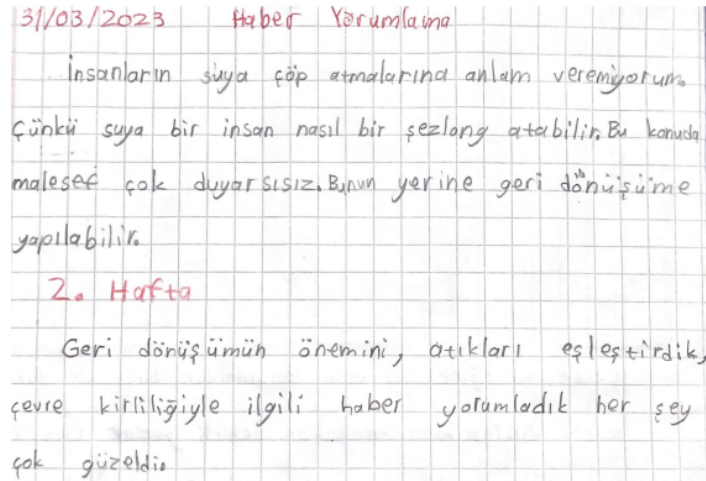 31/03/2023 Haber Yorumlama
İnsanların suya çöp atmalarına anlam veremiyorum.
Çünkü suya bir insan nasıl bir şezlong atabilir. Bu konuda
malesef çok duyarsısız. Bunun yerine geri dönüşüme
yapılabilir.
2. Hafta
Geri dönüşümün önemini, atıkları eşleştirdik,
çevre kirliliğiyle ilgili haber yorumladık her şey
çok güzeldi.